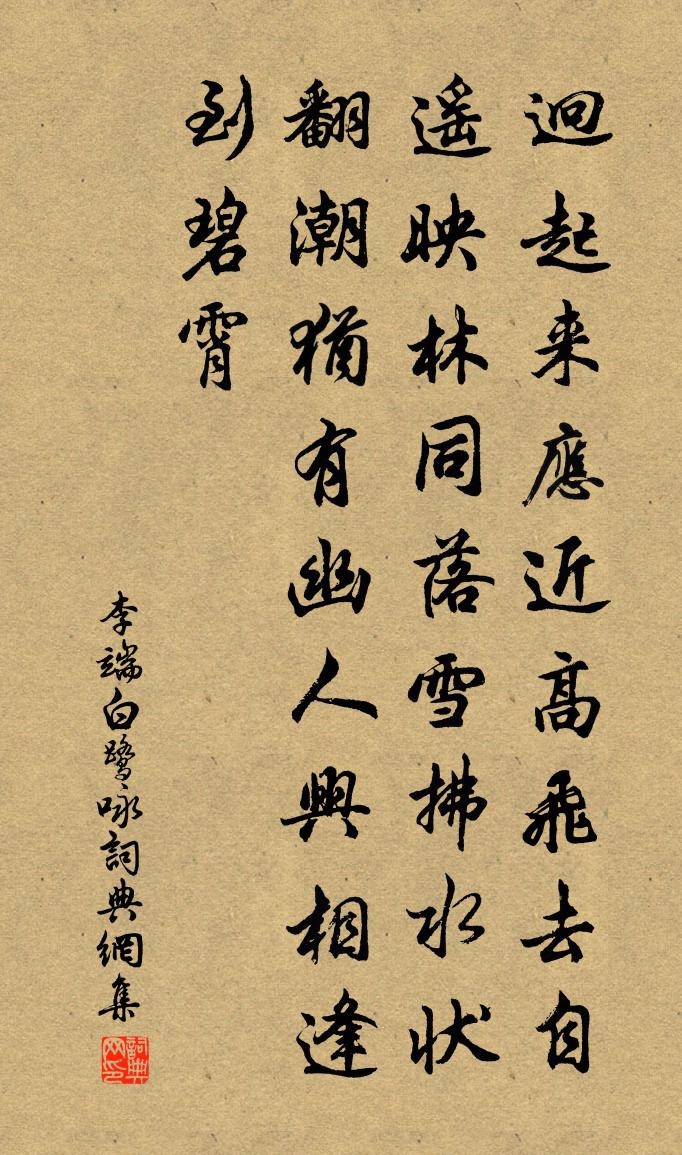 迥起來應近高飛去自
遥映林同落雪拂水状
翻潮猶有幽人興相逢
到碧霄
李端白鹭咏詞典網集
詞典网印